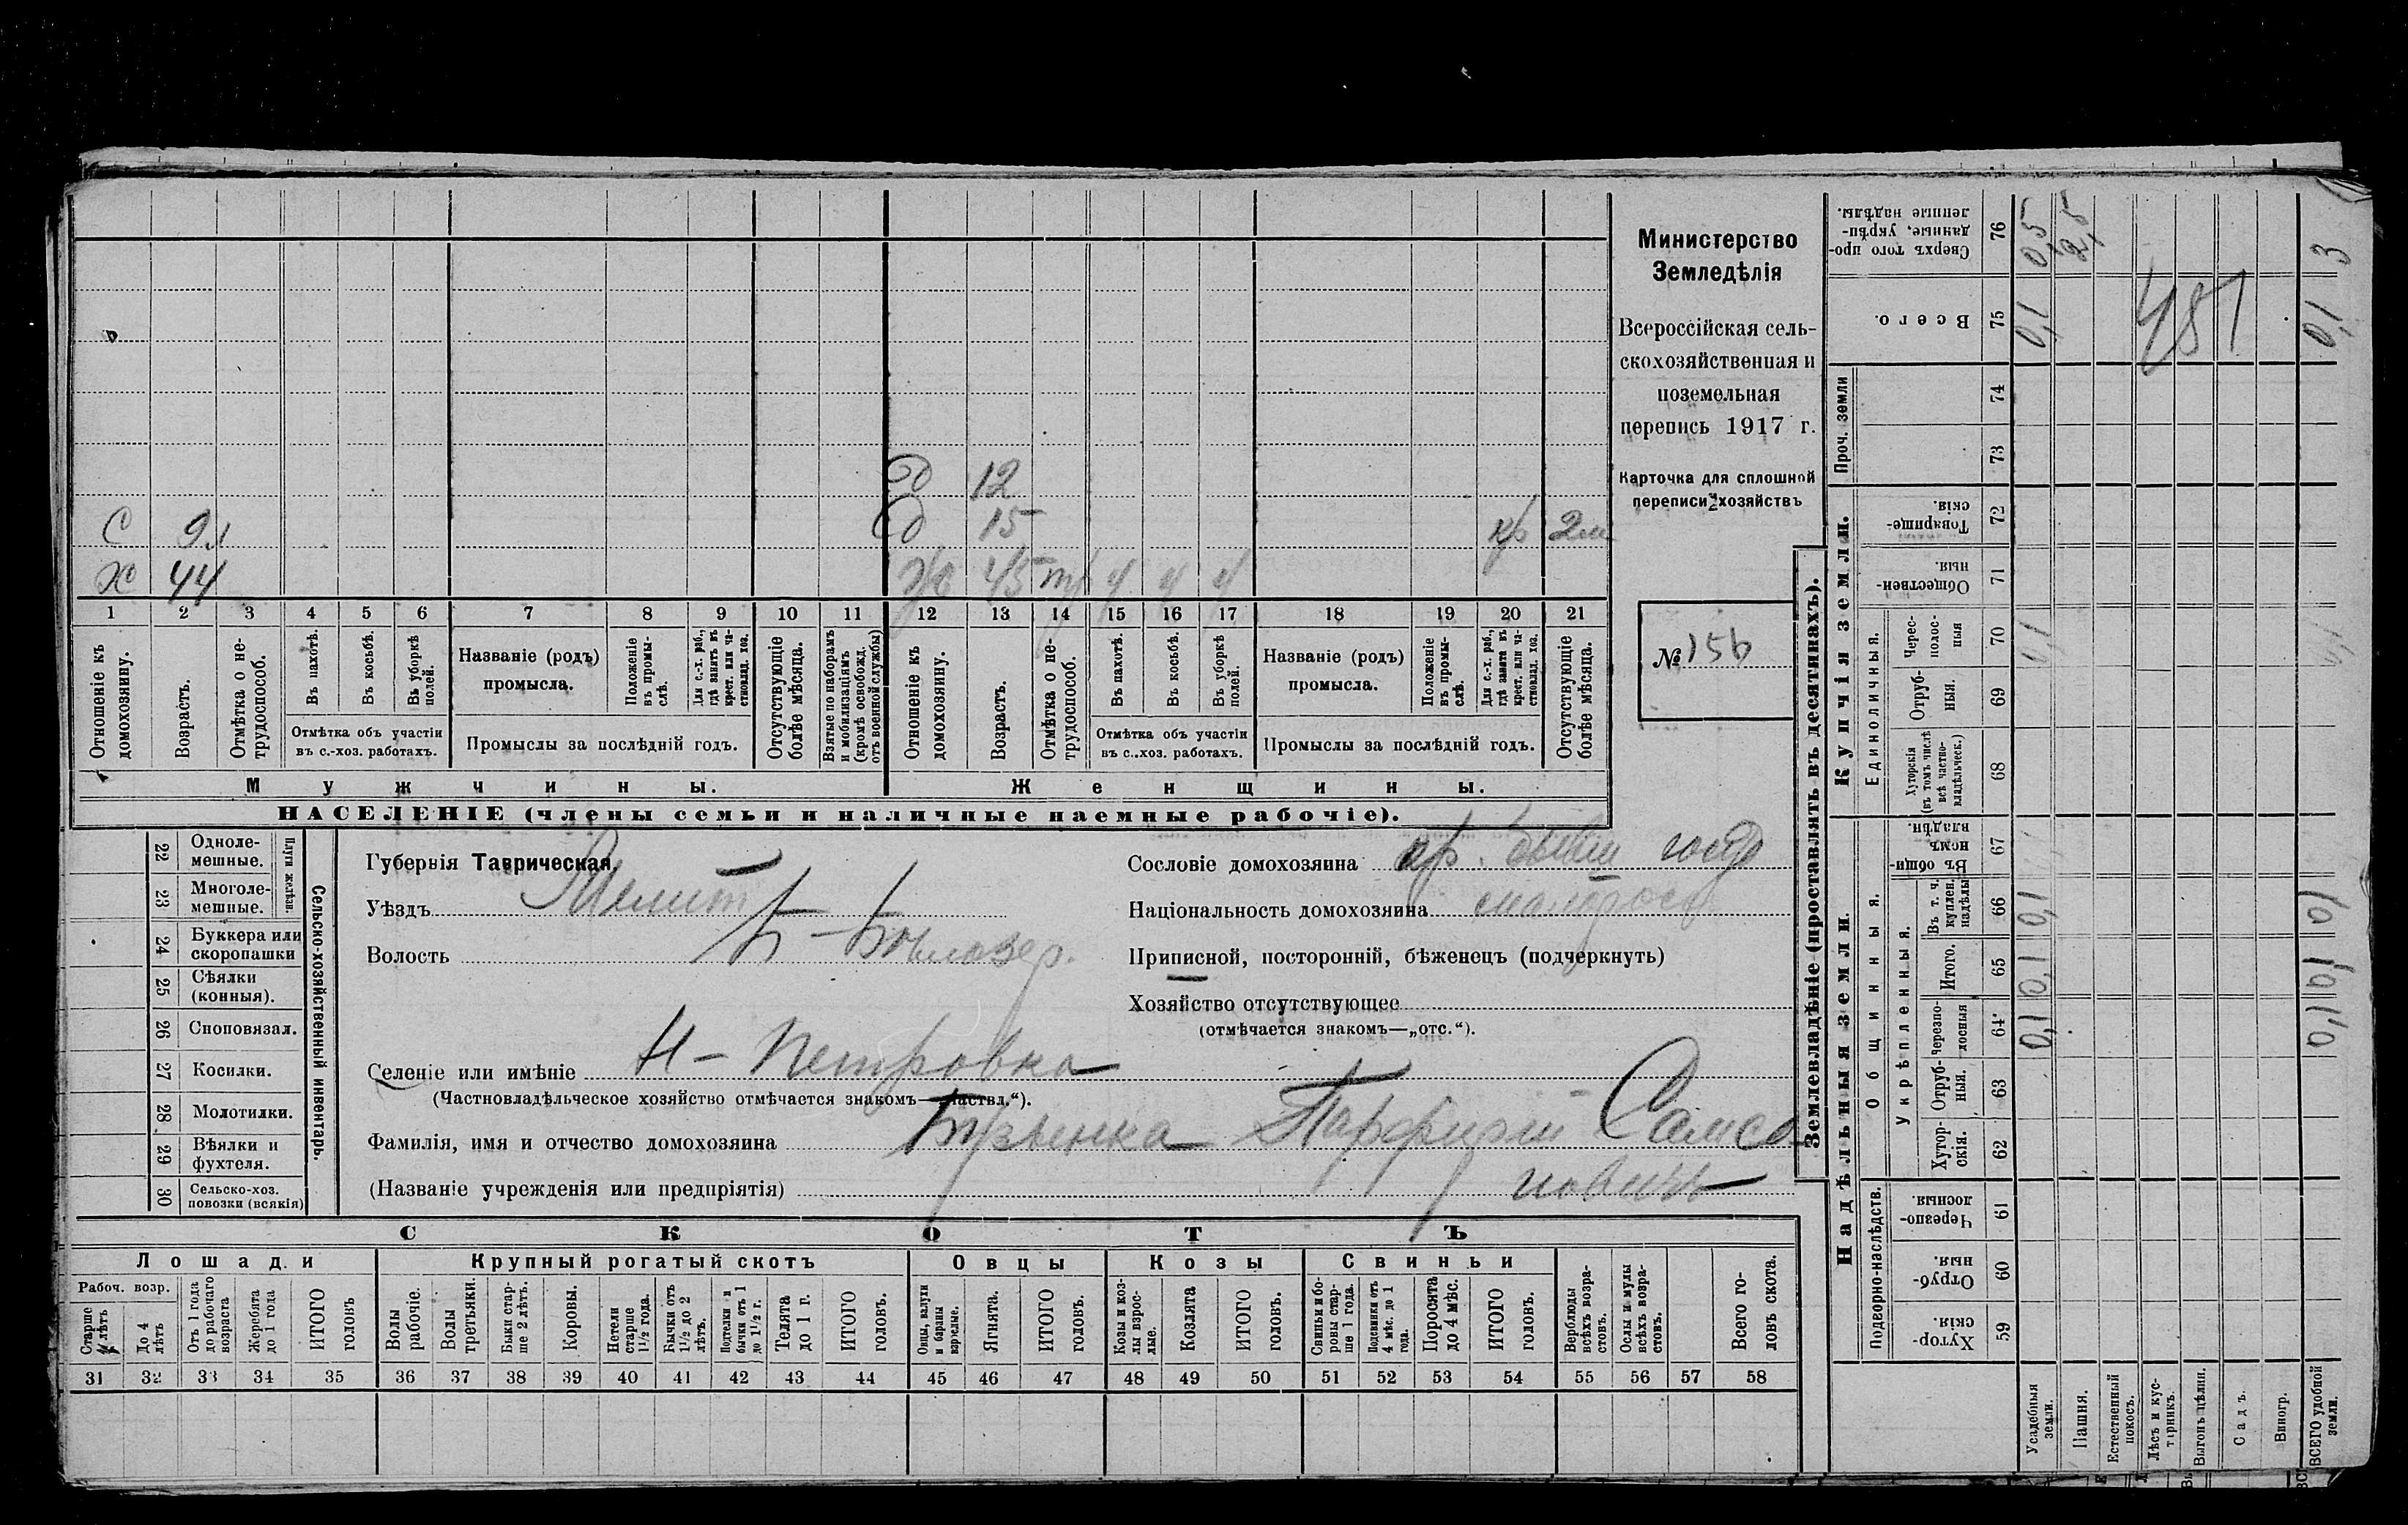 Д 12
С 9 Д 15 кр 2м
Х 44 Ж 45 ч ч ч
1 2 3 4 5 6 7 8 9 10 11 12 13 14 15 16 17 18 19 20 21
Отношеніе къ домохозяину.
Возрастъ.
Отмѣтка о не-
трудоспособ.
Въ пахотѣ.
Въ косьбѣ.
Въ уборкѣ полей.
Отмѣтка объ участіи
въ с.-хоз. работахъ.
Названіе (родъ)
промысла.
Положеніе въ промы-
слѣ.
Для с.-х. раб., гдѣ занятъ въ крест. или ча-
стновлад. хоз.
Промыслы за послѣдній годъ.
Отсутствующіе болѣе мѣсяца.
Взятые по наборамъ и мобилизаціямъ (кромѣ освобожд. отъ военной службы)
Отношеніе къ домохозяину.
Возрастъ.
Отмѣтка о не-
трудоспособ.
Въ пахотѣ.
Въ косьбѣ.
Въ уборкѣ полей.
Отмѣтка объ участіи
въ с..хоз. работахъ.
Названіе (родъ)
промысла.
Положеніе въ промы-
слѣ.
Для с.-х. раб., гдѣ занята въ крест. или ча-
стновлад. хоз.
Промыслы за послѣдній годъ.
Отсутствующіе болѣе мѣсяца.
Мужчины. Женщины.
НАСЕЛЕНІЕ (члены семьи и наличные наемные рабочіе).
Министерство
Земледѣлія
Всероссійская сель-
скохозяйственная и
поземельная
перепись 1917 г.
Карточка для сплошной
переписи хозяйствъ
№ 156
Сельско-хозяйственный инвентарь.
Плуги желѣзн.
22 Одноле-
мешные.
23 Многоле-
мешные.
24 Буккера или
скоропашки
25 Сѣялки
(конныя).
26 Сноповязал.
27 Косилки.
28 Молотилки.
29 Вѣялки и
фухтеля.
30 Сельско-хоз.
повозки (всякія)
Губернія Таврическая,
Уѣздъ Мелит
Волость Б-Бѣлозер.
Селеніе или имѣніе Н-Петровка
(Частновладѣльческое хозяйство отмѣчается знакомъ—„частвл.“).
Фамилія, имя и отчество домохозяина Парфирій Самсо
(Названіе учрежденія или предпріятія) новичъ
Сословіе домохозяина кр. бывш госуд
Національность домохозяина малоросс
Приписной, посторонній, бѣженецъ (подчеркнуть)
Хозяйство отсутствующее
(отмѣчается знакомъ—„отс.“).
СКОТЪ
Лошади Крупный рогатый скотъ Овцы Козы Свиньи
Рабоч. возр.
Старше 4 лѣтъ
До 4 лѣтъ
Отъ 1 года до рабочаго возраста
Жеребята до 1 года
ИТОГО головъ
Волы рабочіе.
Волы третьяки.
Быки стар-
ше 2 лѣтъ.
Коровы.
Нетели старше 1½ года.
Бычки отъ 1½ до 2 лѣтъ.
Подтелки и бычки отъ 1 до 1½ г.
Телята до 1 г.
ИТОГО головъ.
Овцы, валухи и бараны взрослые.
Ягнята.
ИТОГО головъ.
Козы и коз-
лы взрос-
лые.
Козлята
ИТОГО головъ.
Свиньи и бо-
ровы стар-
ше 1 года.
Подсвинки отъ 4 мѣс. до 1 года.
Поросята до 4 мѣс.
ИТОГО головъ.
Верблюды всѣхъ возра-
стовъ.
Ослы и мулы всѣхъ возра-
стовъ.
Всего го-
ловъ скота.
31 32 33 34 35 36 37 38 39 40 41 42 43 44 45 46 47 48 49 50 51 52 53 54 55 56 57 58
Землевладѣніе (проставлять въ десятинахъ).
Надѣльныя земли.
Купчія земли.
Проч. земли
Подворно-наслѣдств.
Общинныя.
Укрѣпленныя.
Единоличныя.
Сверхъ того про-
данные, укрѣп-
ленные надѣлы. 76 0,5 2,5 3
Всего. 75 0,1 481 0,1
74
73
Товарище-
скія. 72
Обществен-
ныя 71
Черес-
полос-
ныя 70 0,1 0,1
Отруб-
ныя. 69
Хуторскія
(въ томъ числѣ
всѣ частно-
владѣльческ.) 68
Въ общи-
номъ
владѣн. 67
Въ т. ч.
куплен.
надѣлы 66 0,1 0,1
Итого. 65 0,1 0,1
Черезпо-
лосныя 64 0,1 0,1
Отруб-
ныя. 63
Хутор-
скія. 62
Черезпо-
лосныя. 61
Отруб-
ныя. 60
Хутор-
скія. 59
Усадебныя земли.
Пашня.
Естественный покосъ.
Лѣсъ и кус-
тарникъ.
Выгонъ цѣлин.
Садъ.
Виногр.
ВСЕГО удобной земли.